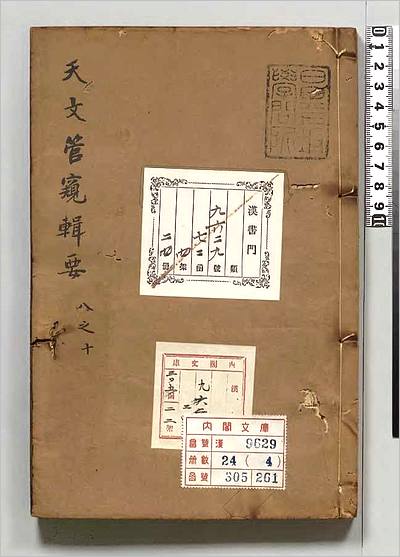 天文管窺輯要
八之十
漢書門
類
九六二九號
七二函
四架
二四冊
內閣文庫
漢
九六二
內閣文庫
番號 漢 9629
冊數 24 ( 4 )
函號 305 261
0 1 2 3 4 5 6 7 8 9 10